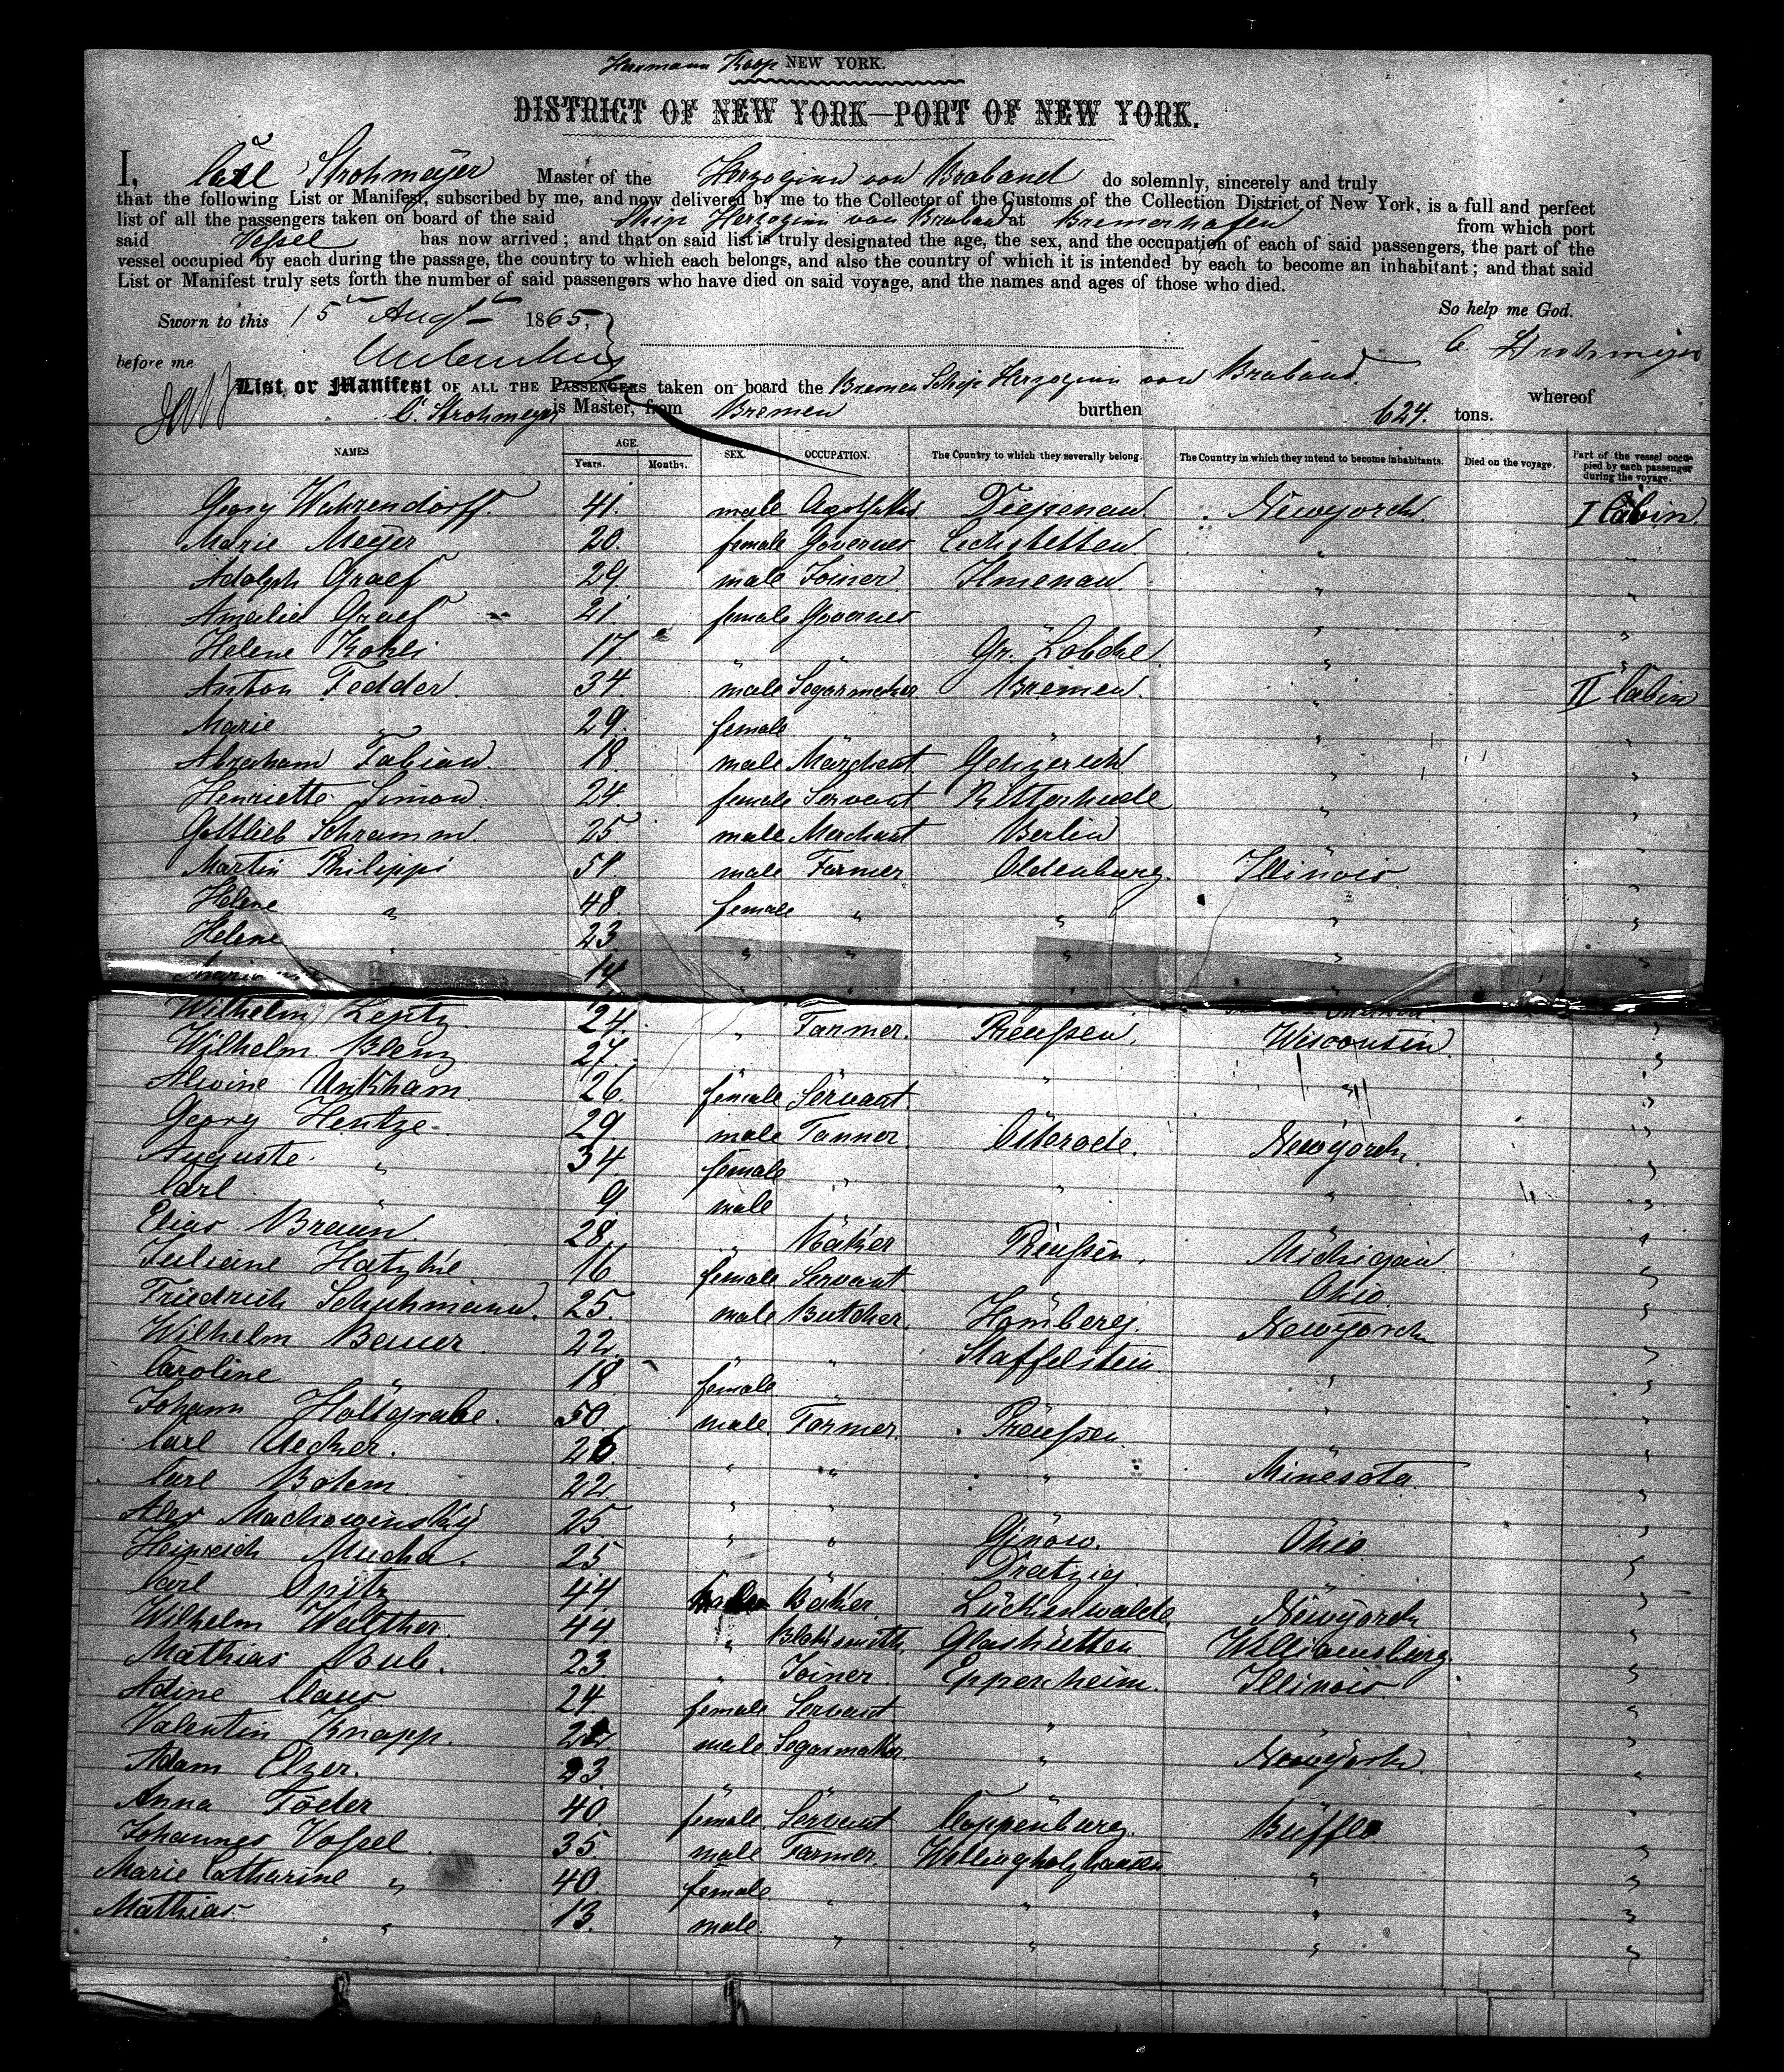 Hermann Koop NEW YORK.
DISTRICT OF NEW YORK—PORT OF NEW YORK.
I, Carl Strohmeyer Master of the Herzoginn von Braband do solemnly, sincerely and truly
that the following List or Manifest, subscribed by me, and now delivered by me to the Collector of the Customs of the Collection District of New York, is a full and perfect
list of all the passengers taken on board of the said Ship Herzoginn von Braband at Bremerhafen from which port
said Vessel has now arrived; and that on said list is truly designated the age, the sex, and the occupation of each of said passengers, the part of the
vessel occupied by each during the passage, the country to which each belongs, and also the country of which it is intended by each to become an inhabitant; and that said
List or Manifest truly sets forth the number of said passengers who have died on said voyage, and the names and ages of those who died.
So help me God.
Sworn to this 15 Augt 1865,
C. Strohmeyer
before me
List or Manifest OF ALL THE PASSENGERS taken on board the Bremen Schip Herzoginn von Braband. whereof
C. Strohmeyer is Master, from Bremen burthen 624. tons.
NAMES AGE. Years. Months. SEX. OCCUPATION. The Country to which they severally belong. The Country in which they intend to become inhabitants. Died on the voyage. Part of the vessel occupied by each passenger during the voyage.
Georg Wahrendorff 41. male Diepenau. Newyorck. I Cabin.
Marie Meyer 20. female Governes " "
Adolph Graef 29 male Joiner Ilmenau. " "
Amalie Graef 21. female Governes " " "
Helene Kohli 17 " " Gr. Lobcke. " "
Anton Fedder. 34. male Segarmaker Bremen. " II Cabin
Marie " 29. female " "
Abraham Fabian. 18 male Marchent " "
Henriette Simon. 24. female Servant Ritterhude " "
Gottlieb Schramm. 25 male Merchant Berlin " "
Martin Philippi 51. male Farmer Oldenburg. Illinois "
Helene " 48. female " " " "
Helene " 23. " " " " "
14. " " " "
Wilhelm Lentz. 24. " Farmer. Preußen. Wisconsin. "
Wilhelm 27. "
Alwine Unkham 26. female Servant. " " "
Georg Hentze. 29. male Tanner Osterode. Newyorck. "
Auguste " 34. female " " " "
Carl " 9 male "
Elias Braun. 28. " Bäker Preußen. Michigan. "
Juliane 16. female Servant. " Ohio "
Friedrich Schuhmann. 25. male Butcher. Homberg. Newyorck "
Wilhelm Bauer 22. " " Staffelstein " "
Caroline " 18 female " " "
Johann Holtgrabe. 50. male. Farmer. Preußen " "
Carl Uecker. 26. " " " Minesota. "
Carl Bohm. 22. " " "
Alex Machowinsky 25. " " Ohio. "
Heinrich Mucha. 25. Dratzig. "
Carl Opitz 44 Bäker. Lückenwalde. Newyorck "
Wilhelm Walther. 44. " Blaksmith. Glashütten. Williamsburg. "
Mathias Bub. 23. " Joiner Eppenheim. Illinois. "
Adine Claus 24. female Servant " "
Valentin Knapp. male Segarmaker " Newyorck. "
Adam Elzer. 23. " "
Anna Föder 40. female. Servant Coppenburg. Buffelo "
Johannes Voßel 35 male Farmer. Wellingholzhausen " "
Marie Catharine " 40. female " " " "
Mathias " 13. male " " " "